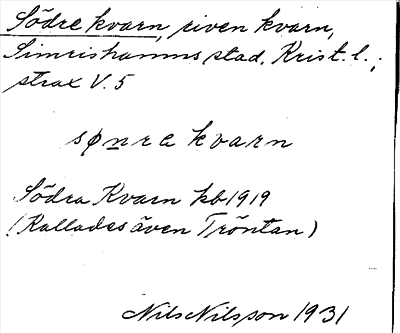 Södre kvarn, riven kvarn,
Simrishamns stad, Krist. l.;
strax V. 5
sønra kvarn
Södra Kvarn kb 1919
(Kallades även Tröntan)
Nils Nilsson 1931